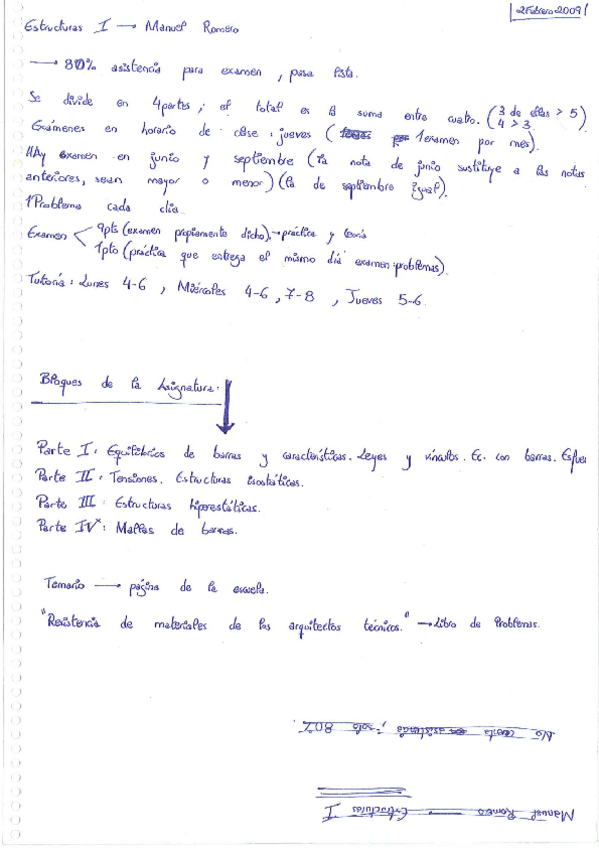 2 Febrero 2009
Estructuras I → Manuel Romero
→ 80% asistencia para examen, pasa lista.
Se divide en 4 partes; el total es la suma entre cuatro. (3 de ellas > 5)
4 > 3
Exámenes en horario de clase: jueves ( 1 examen por mes).
HAy examen en junio y septiembre (la nota de junio sustituye a las notas
anteriores, sean mayor o menor) (la de septiembre igual).
1 Problema cada día
Examen
9pts (examen propiamente dicho) → práctica y teoría
1pto (práctica que entrega el mismo día examen: problemas).
Tutoría: Lunes 4-6, Miércoles 4-6, 7-8, Jueves 5-6.
Bloques de la Asignatura:
Parte I: Equilibrios de barras y características. Leyes y vínculos. Ec. con barras. Esfuer
Parte II: Tensiones. Estructuras isostáticas.
Parte III: Estructuras hiperestáticas.
Parte IV: Mallas de barras.
Temario → página de la escuela.
"Resistencia de materiales de los arquitectos técnicos." → Libro de Problemas.
No cuenta asistencia; solo 80%
Manuel Romero — Estructuras I